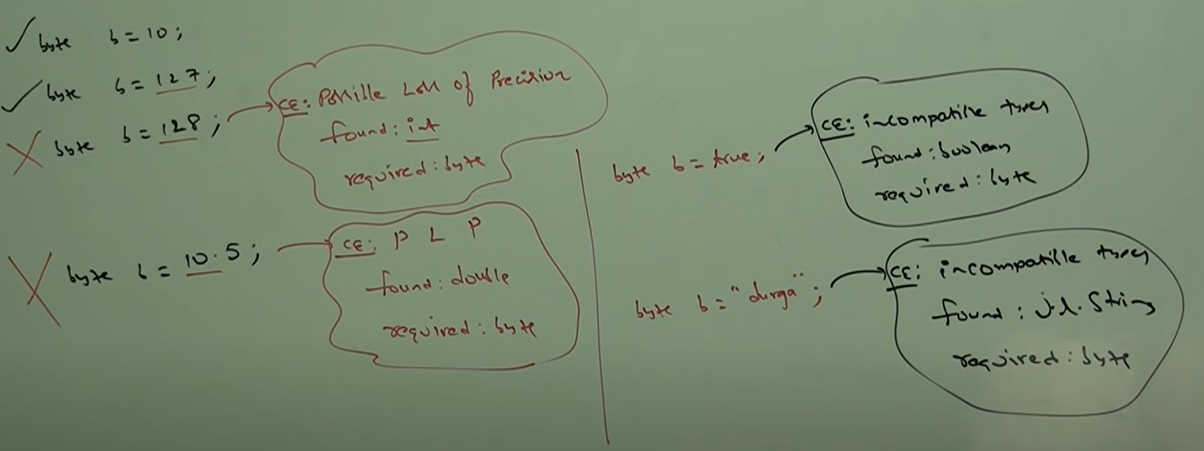 ✓ byte b = 10;
✓ byte b = 127;
X byte b = 128;
CE: Possible Loss of Precision
found: int
required: byte
X byte b = 10.5;
CE: P L P
found: double
required: byte
byte b = true;
CE: incompatible types
found: boolean
required: byte
byte b = "durga";
CE: incompatible types
found: j.l.String
required: byte